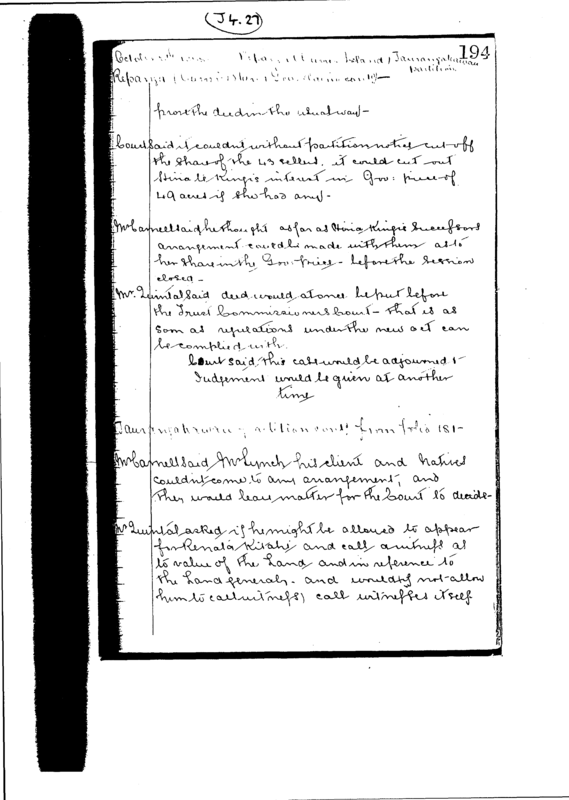 (J 4. 27)
194
Island / Taurangakawau
Partition
prove the deed in the usual way -
Court Said it couldnt without partition notice cut off
the share of the 43 sellers, it could cut out
Hina te Kingi's interest in Gov: piece of
49 acres if she had any -
Mr Carnell said he thought as far as Hina Kingi's Successors
arrangement could be made with them as to
her share in the Gov: piece - before the Session
closed -
Mr. Quintal Said deed would at once be put before
the Trust Commissioners Court - that is as
soon as regulations under the new act can
be complied with.
Court said this case would be adjourned &
Judgement would be given at another
time
from folio 181 -
Mr Carnell Said Mr Lynch his client and Natives
couldnt come to any arrangement, and
they would leave matter for the Court to decide -
Mr Quintal asked if he might be allowed to appear
for Renata Kitahi and call a witness as
to value of the Land and in reference to
the Land generaly - and would (if not allow
him to call witness) call witnesses itself